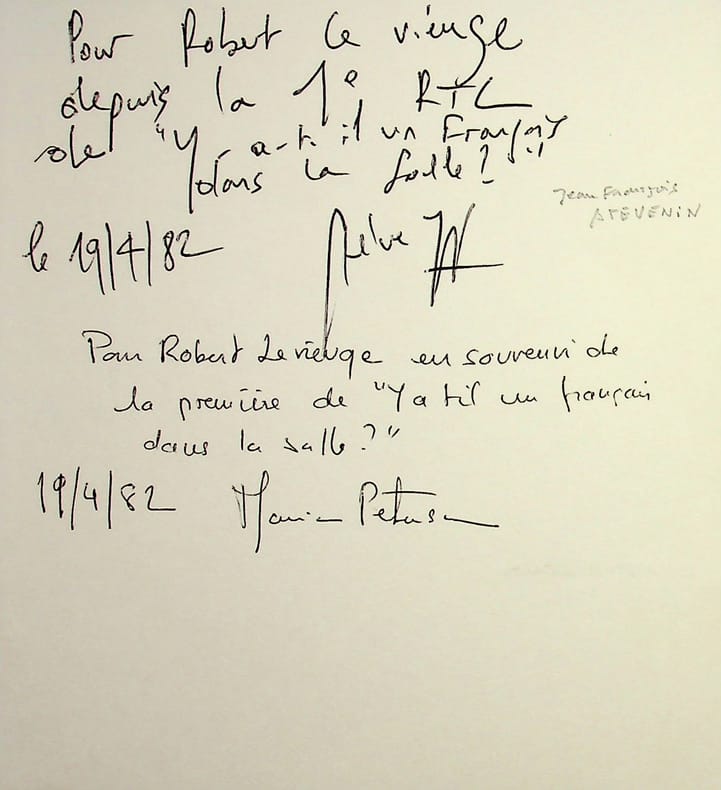 Pour Robert Le vieuge
depuis la 1e RTL
de "Y-a-t-il un Français
dans la salle?"
Jean François
STEVENIN
le 19/4/82
Pour Robert Le vieuge en souvenir de
la première de "Y a t il un français
dans la salle?"
19/4/82